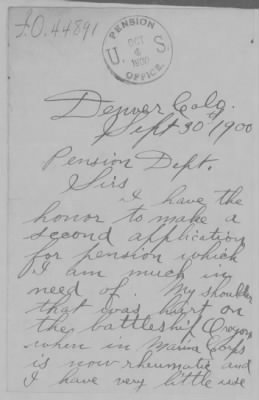 I.O. 44891
PENSION
U.S.
OCT
4
1900
OFFICE.
Denver Colo.
Sept 30th 1900
Pension Dept.
Sirs
I have the
honor to make a
second application
for pension which
I am much in
need of. My shoulder
that was hurt on
the battleship Oregon
when in Marine Corps
is now rheumatic and
I have very little use